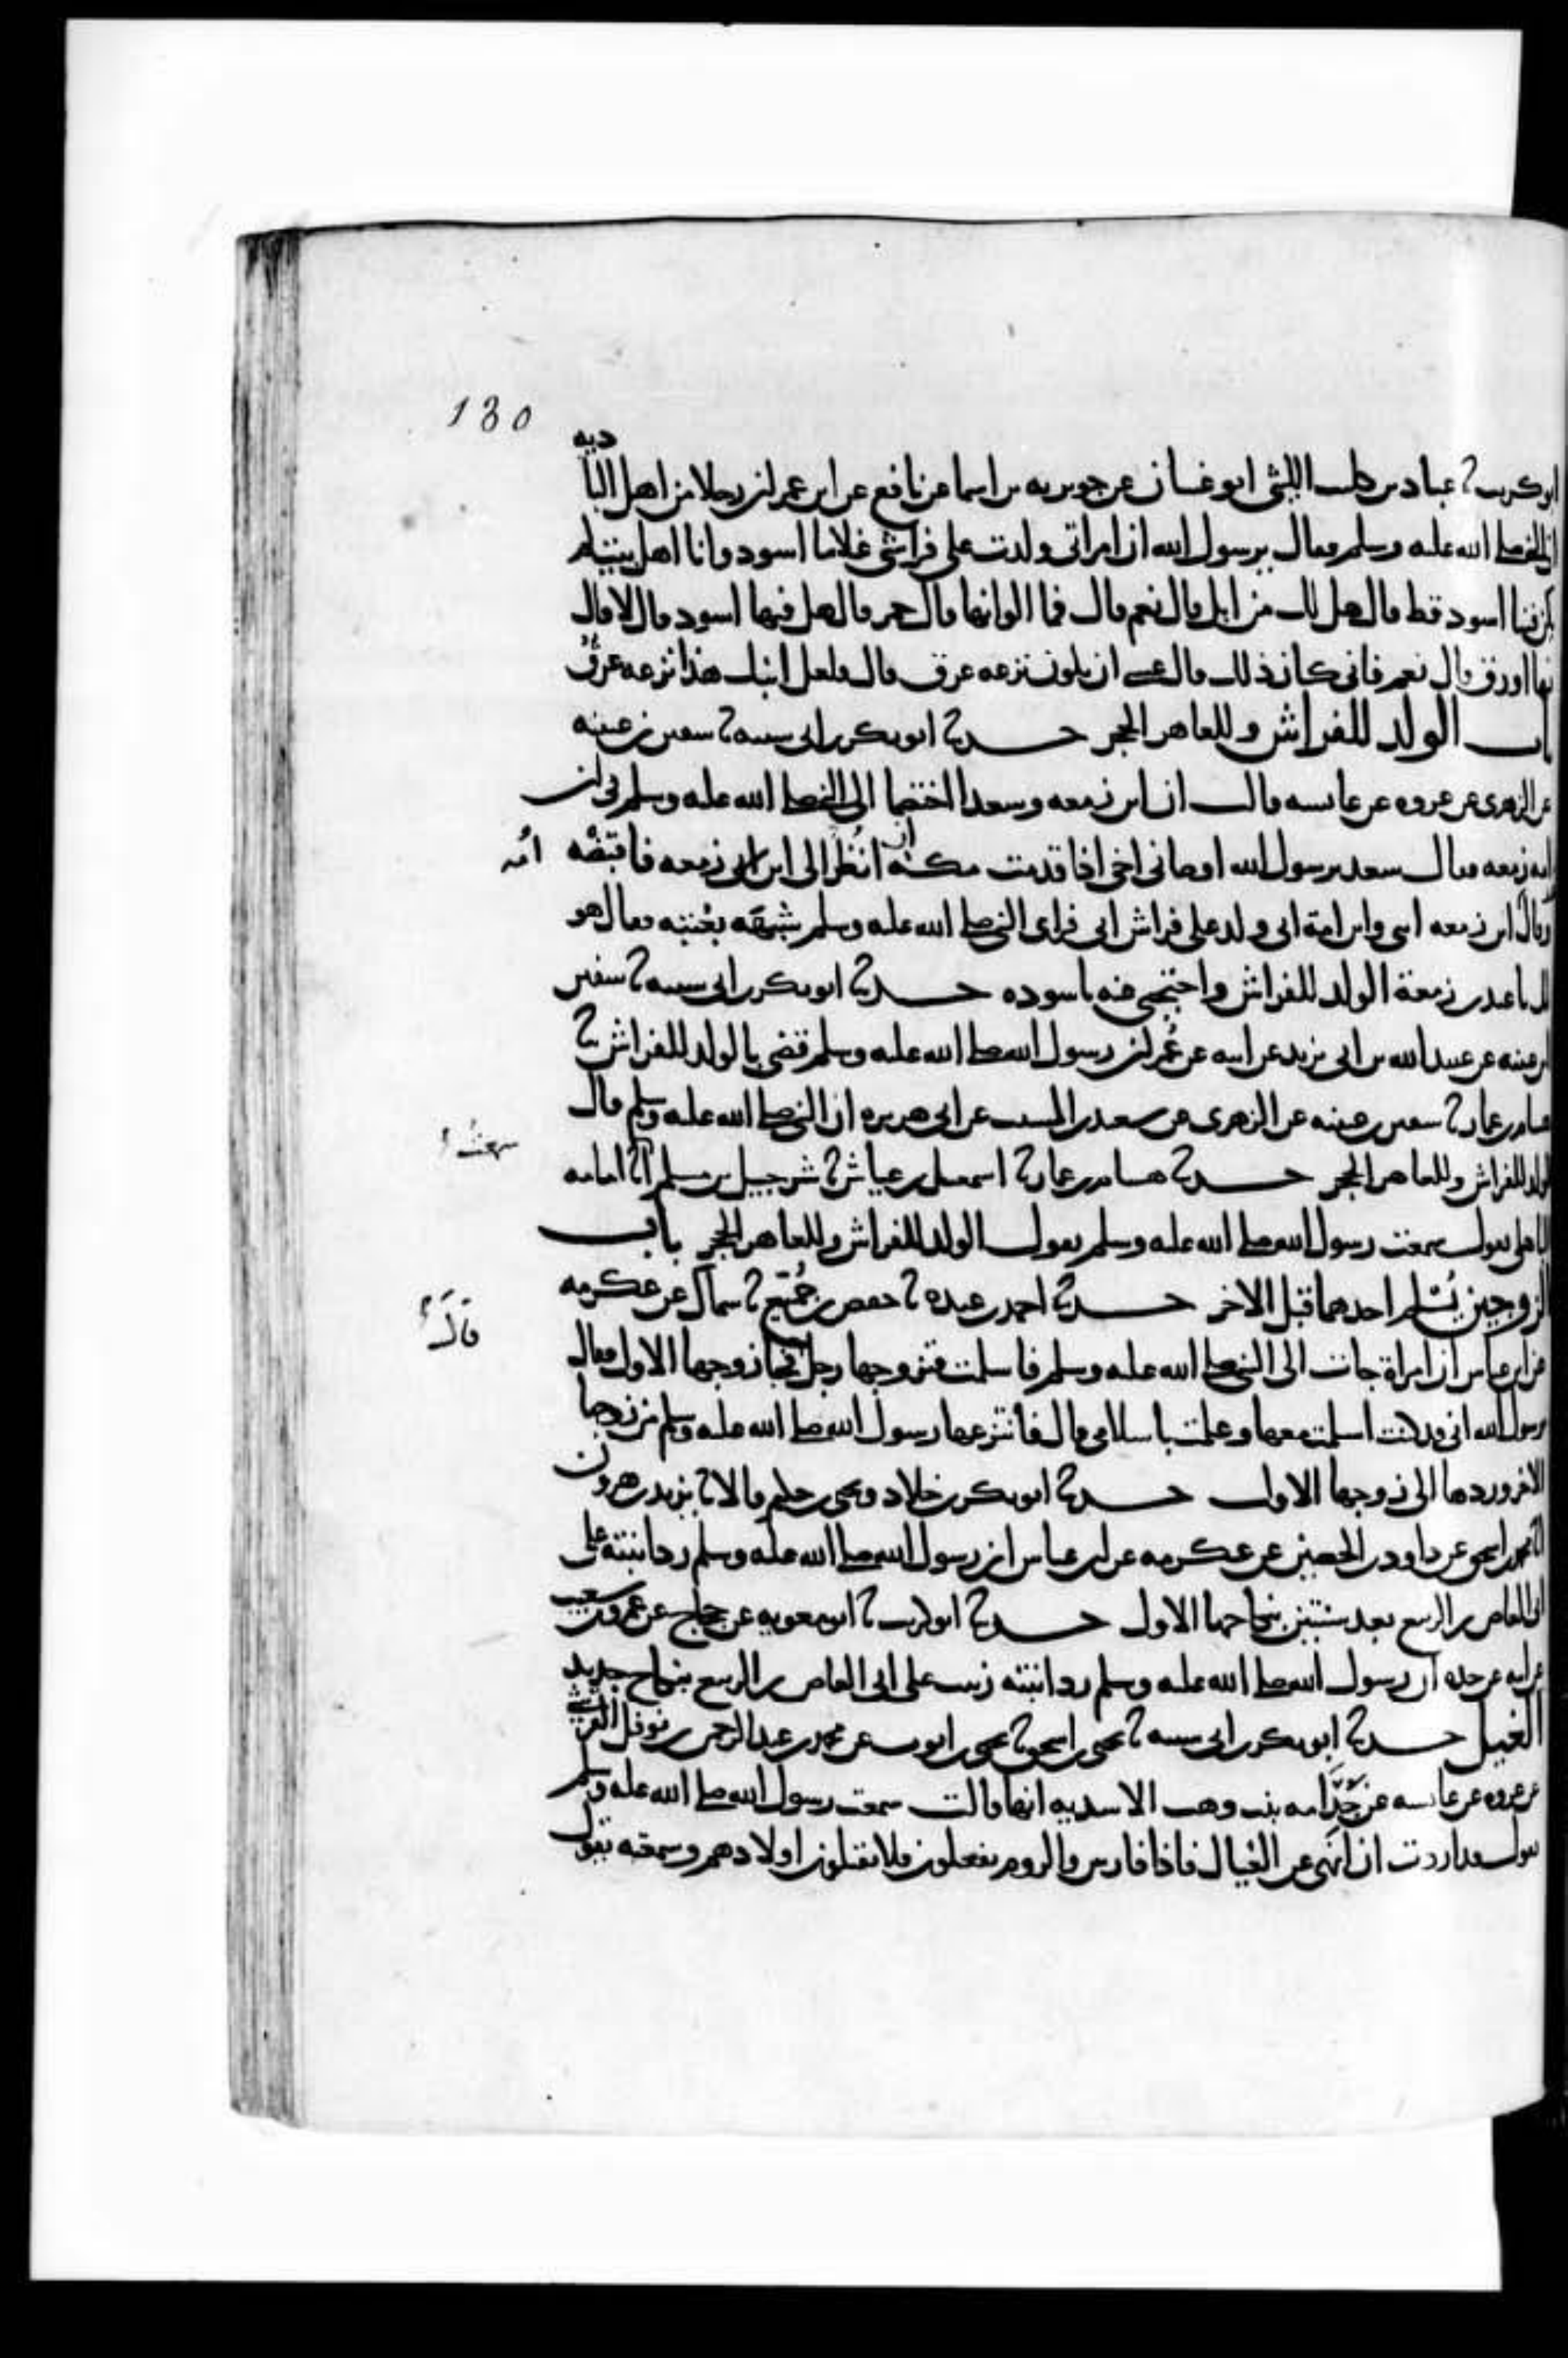 130
ديه
ابو كريب ثنا عباد بن كليب الليثي ابو غسان عن جويريه بن اسما عن نافع عن ابن عمر ان رجلا من اهل البا
اتى النبي صلى الله عليه وسلم فقال يرسول الله ان امراتي ولدت على فراشي غلاما اسود وانا اهل بيت لم
يكن فينا اسود قط قال هل لك من ابل قال نعم قال فما الوانها قال حمر قال هل فيها اسود قال لا قال
فيها اورق قال نعم قال فانى كان ذلك قال عسى ان يكون نزعه عرق قال فلعل ابنك هذا نزعه عرق
باب الولد للفراش وللعاهر الحجر حدثنا ابو بكر بن ابي شيبه ثنا سفين بن عيينه
عن الزهرى عن عروه عن عايشه قالت ان ابن زمعه وسعدا اختصما الى النبي صلى الله عليه وسلم في ابن
امه زمعه فقال سعد يرسول الله اوصاني اخي اذا قدمت مكه ان انظر الى ابن امه زمعه فاقبضه
وقال ابن زمعه اخي وابن امة ابي ولد على فراش ابي فراى النبي صلى الله عليه وسلم شبهه بعتبه فقال هو
لك يا عبد بن زمعة الولد للفراش واحتجبي منه يا سوده حدثنا ابو بكر بن ابي شيبه ثنا سفين
بن عيينه عن عبيد الله بن ابي يزيد عن ابيه عن عمر ان رسول الله صلى الله عليه وسلم قضى بالولد للفراش ثنا
هشام بن عمار ثنا سفين بن عيينه عن الزهرى عن سعيد بن المسيب عن ابي هريره ان النبي صلى الله عليه وسلم قال
الولد للفراش وللعاهر الحجر حدثنا هشام بن عمار ثنا اسمعيل بن عياش ثنا شرحبيل بن مسلم ابا امامه
سمعت
الباهلي يقول سمعت رسول الله صلى الله عليه وسلم يقول الولد للفراش وللعاهر الحجر باب
الزوجين يسلم احدهما قبل الاخر حدثنا احمد بن عبده ثنا حفص بن جميع ثنا سماك عن عكرمه
قال
عن ابن عباس ان امراة جات الى النبي صلى الله عليه وسلم فاسلمت فتزوجها رجل فجا زوجها الاول فقال
يرسول الله اني قد كنت اسلمت معها وعلمت باسلامي قال فانتزعها رسول الله صلى الله عليه وسلم من زوجها
الاخر وردها الى زوجها الاول حدثنا ابو بكر بن خلاد ويحيى بن حكيم قالا ثنا يزيد بن هرون
انا محمد بن اسحق عن داود بن الحصين عن عكرمه عن ابن عباس ان رسول الله صلى الله عليه وسلم رد ابنته على
ابي العاص بن الربيع بعد سنتين بنكاحها الاول حدثنا ابو كريب ثنا ابو معويه عن حجاج عن عمرو بن شعيب
عن ابيه عن جده ان رسول الله صلى الله عليه وسلم رد ابنته زينب على ابي العاص بن الربيع بنكاح جديد
الغيل حدثنا ابو بكر بن ابي شيبه ثنا يحيى بن اسحق ثنا يحيى بن ايوب عن محمد بن عبد الرحمن بن نوفل القرشي
عن عروه عن عايشه عن جدامه بنت وهب الاسديه انها قالت سمعت رسول الله صلى الله عليه وسلم
يقول قد اردت ان انهى عن الغيال فاذا فارس والروم يفعلون فلا يقتلون اولادهم وسمعته يقول